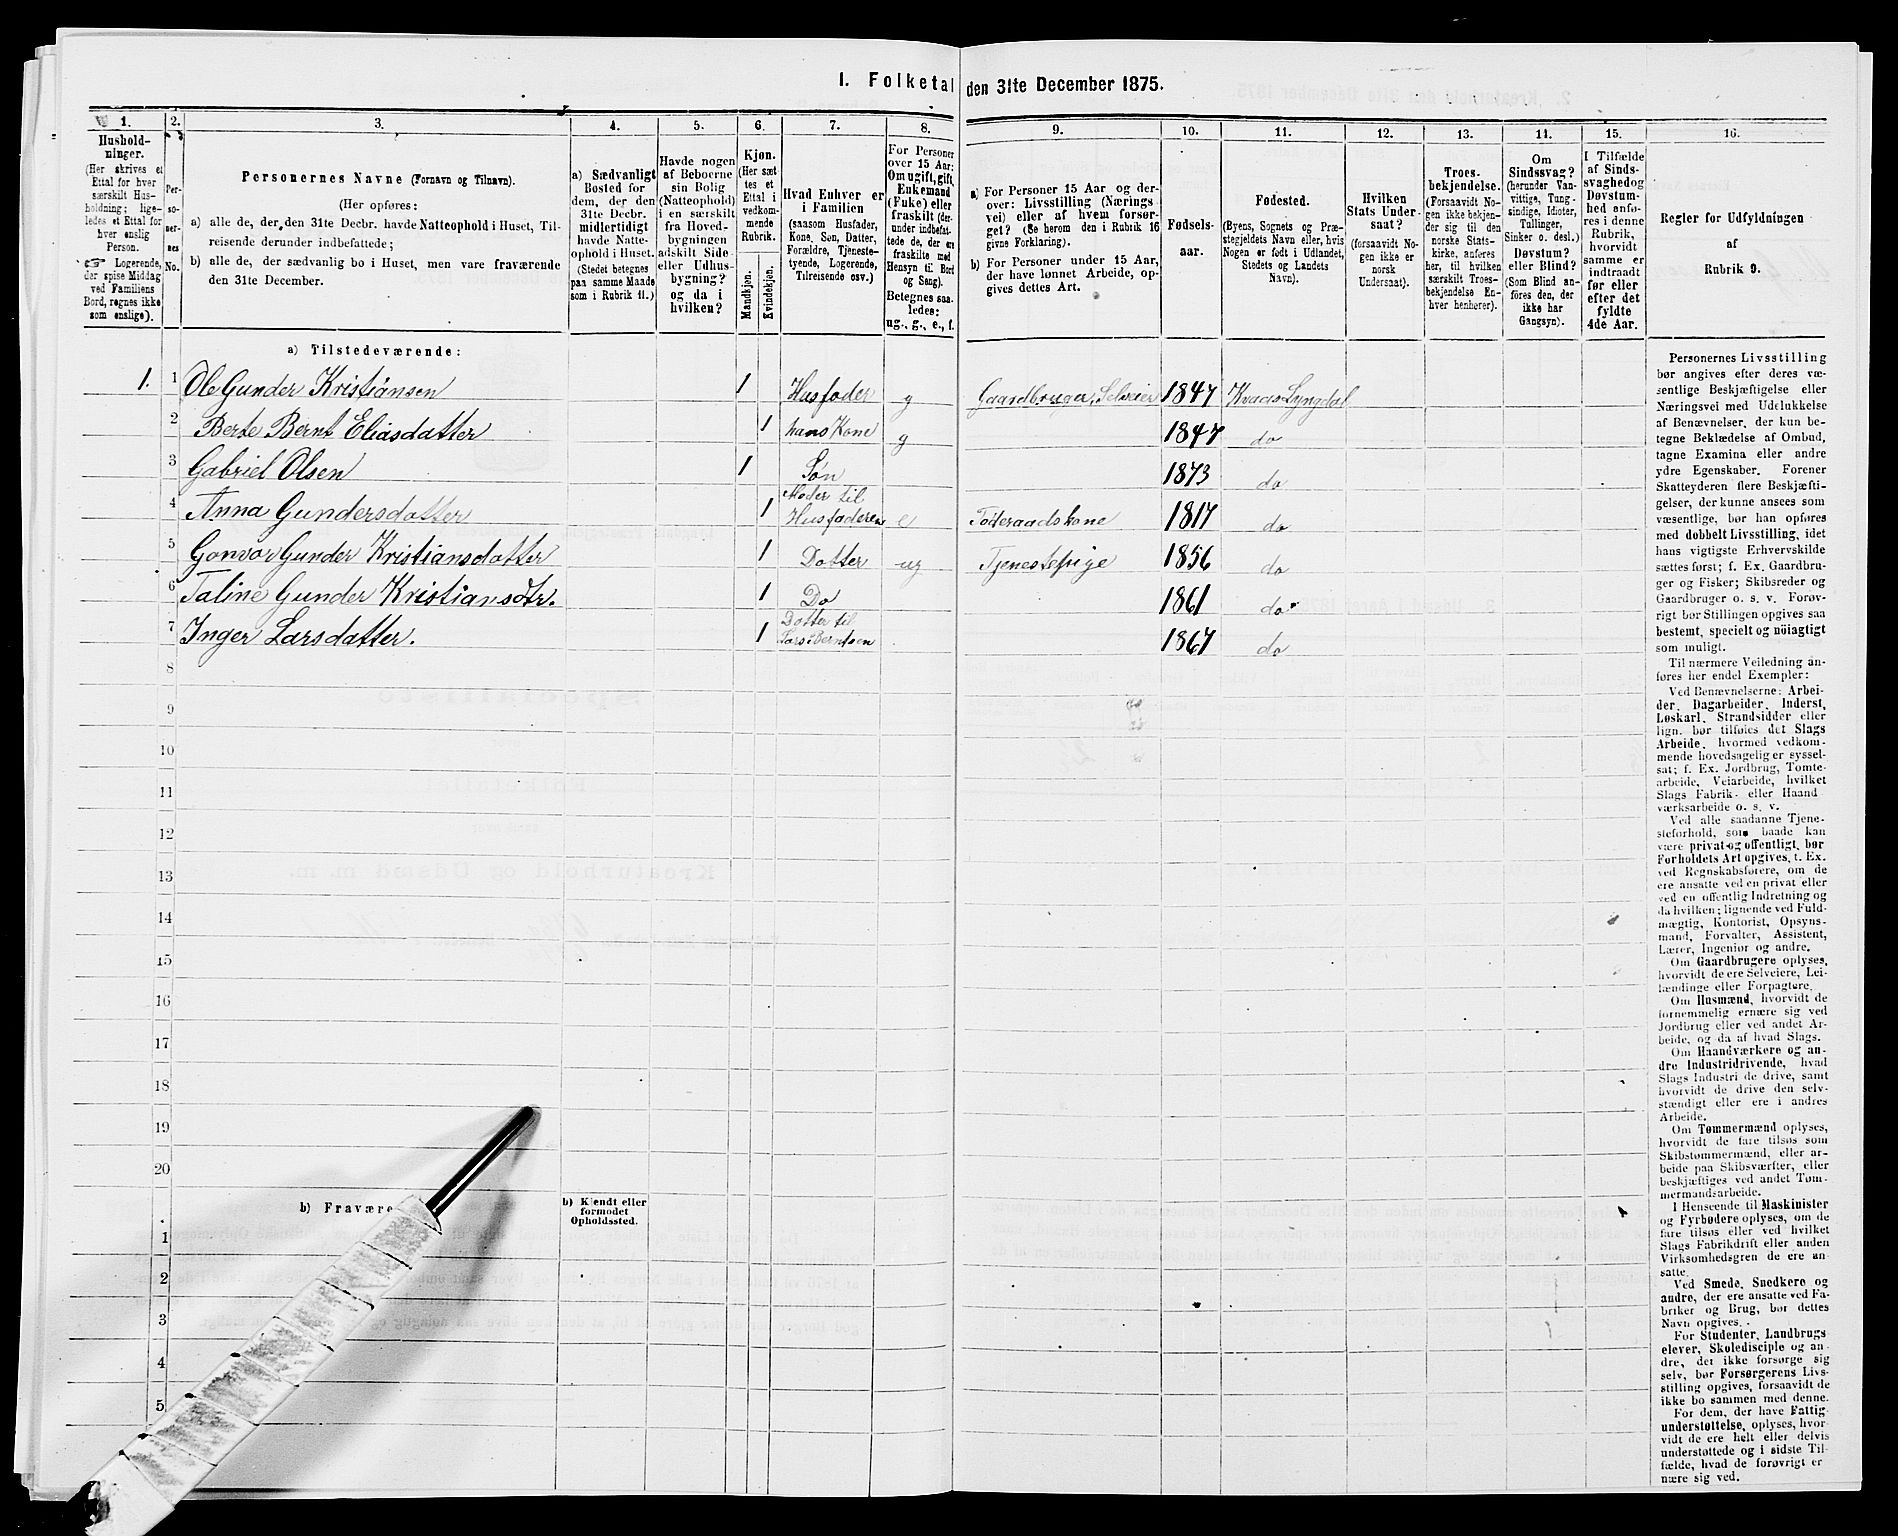 I. Folketal den 31te December 1875.
1.
Hushold-
ninger.
(Her skrives et
Ettal for hver
særskilt Hus-
holdning; lige-
ledes et Ettal for
hver enslig
Person.
☞ Logerende,
der spise Middag
ved Familiens
Bord, regnes ikke
som enslige).
2.
Per-
so-
ner-
nes
No.
3.
Personernes Navne (Fornavn og Tilnavn).
(Her opføres:
a) alle de, der den 31te Decbr. havde Natteophold i Huset, Til-
reisende derunder indbefattede;
b) alle de, der sædvanlig bo i Huset, men vare fraværende
den 31te December.
4.
a) Sædvanligt
Bosted for
dem, der den
31te Decbr.
midlertidigt
havde Natte-
ophold i Huset.
(Stedet betegnes
paa samme Maade
som i Rubrik 11.)
5.
Havde nogen
af Beboerne
sin Bolig
(Natteophold)
i en særskilt
fra Hoved-
bygningen
adskilt Side-
eller Udhus-
bygning?
og da i
hvilken?
6.
Kjøn.
(Her sæt-
tes et
Ettal i
vedkom-
mende
Rubrik.
Mandkjøn.
Kvindekjøn.
7.
Hvad Enhver er
i Familien
(saasom Husfader,
Kone, Søn, Datter,
Forældre, Tjeneste-
tyende, Logerende,
Tilreisende osv.)
8.
For Personer
over 15 Aar:
Om ugift, gift,
Enkemand
(Enke) eller
fraskilt (der-
under indbefat-
tede de, der ere
fraskilte med
Hensyn til Bord
og Seng).
Betegnes saa-
ledes:
ug., g., e., f.
9.
a) For Personer 15 Aar og der-
over: Livsstilling (Nærings-
vei) eller af hvem forsør-
get? (Se herom den i Rubrik 16
givne Forklaring).
b) For Personer under 15 Aar,
der have lønnet Arbeide, op-
gives dettes Art.
10.
Fødsels-
aar.
11.
Fødested.
(Byens, Sognets og Præ-
stegjeldets Navn eller, hvis
Nogen er født i Udlandet,
Stedets og Landets
Navn).
12.
Hvilken
Stats Under-
saat?
(forsaavidt No-
gen ikke er
norsk
Undersaat).
13.
Troes-
bekjendelse.
(Forsaavidt No-
gen ikke bekjen-
der sig til den
norske Stats-
kirke, anføres
her, til hvilken
særskilt Troes-
bekjendelse En-
hver henhører).
14.
Om
Sindssvag?
(herunder Van-
vittige, Tung-
sindige, Idioter,
Tullinger,
Sinker o. desl.)
Døvstum?
eller Blind?
(Som Blind an-
føres den, der
ikke har
Gangsyn).
15.
I Tilfælde
af Sinds-
svaghed og
Døvstum-
hed anfø-
res i denne
Rubrik,
hvorvidt
samme er
indtraadt
før eller
efter det
fyldte
4de Aar.
16.
Regler for Udfyldningen
af
Rubrik 9.
a) Tilstedeværende:
1. 1 Ole Gunder Kristiansen 1 Husfader g Gaardbruger, Selveier 1847 Kvaas Lyngdal
2 Berte Bernt Eliasdatter 1 hans Kone g 1847 do
3 Gabriel Olsen 1 Søn 1873 do
4 Anna Gundersdatter 1 Moder til Husfaderen e Føderaadskone 1817 do
5 Gonvor Gunder Kristiansdatter 1 Datter ug Tjenestepige 1856 do
6 Taline Gunder Kristiansdtr. 1 Do 1861 do
7 Inger Larsdatter. 1 Datter til Lars Berntsen 1867 do
8
9
10
11
12
13
14
15
16
17
18
19
20
b) Fravære
b) Kjendt eller
formodet
Opholdssted.
1
2
3
4
5
Personernes Livsstilling
bør angives efter deres væ-
sentlige Beskjæftigelse eller
Næringsvei med Udelukkelse
af Benævnelser, der kun be-
tegne Beklædelse af Ombud,
tagne Examina eller andre
ydre Egenskaber. Forener
Skatteyderen flere Beskjæfti-
gelser, der kunne ansees som
væsentlige, bør han opføres
med dobbelt Livsstilling, idet
hans vigtigste Erhvervskilde
sættes først; f. Ex. Gaardbru-
ger og Fisker; Skibsreder og
Gaardbruger o. s. v. Forøv-
rigt bør Stillingen opgives saa
bestemt, specielt og nöiagtigt
som muligt.
Til nærmere Veiledning an-
føres her endel Exempler:
Ved Benævnelserne: Arbei-
der, Dagarbeider, Inderst,
Løskarl, Strandsidder eller
lign. bør tilføies det Slags
Arbeide, hvormed vedkom-
mende hovedsagelig er syssel-
sat; f. Ex. Jordbrug, Tomte-
arbeide, Veiarbeide, hvilket
Slags Fabrik- eller Haand-
værksarbeide o. s. v.
Ved alle saadanne Tjene-
steforhold, som baade kan
være privat og offentligt, bør
Forholdets Art opgives, t. Ex.
ved Regnskabsførere, om de
ere ansatte ved en privat eller
ved en offentlig Indretning og
da hvilken; lignende ved Fuld-
mægtig, Kontorist, Opsyns-
mand, Forvalter, Assistent,
Lærer, Ingeniør og andre.
Om Gaardbrugere oplyses,
hvorvidt de ere Selveiere, Lei-
lændinge eller Forpagtere.
Om Husmænd, hvorvidt de
fornemmelig ernære sig ved
Jordbrug eller ved andet Ar-
beide, og da af hvad Slags.
Om Haandværkere og an-
dre Industridrivende, hvad
Slags Industri de drive, samt
hvorvidt de drive den selv-
stændigt eller ere i andres
Arbeide.
Om Tømmermænd oplyses,
hvorvidt de fare tilsøs som
Skibstømmermænd, eller ar-
beide paa Skibsværfter, eller
beskjæftiges ved andet Tøm-
mermandsarbeide.
I Henseende til Maskinister
og Fyrbødere oplyses, om de
fare tilsøs eller ved hvilket
Slags Fabrikdrift eller anden
Virksomhedsgren de ere an-
satte.
Ved Smede, Snedkere og
andre, der ere ansatte ved Fa-
briker og Brug, bør dettes
Navn opgives.
For Studenter, Landbrugs-
elever, Skoledisciple og an-
dre, der ikke forsørge sig
selv, bør Forsørgerens Livs-
stilling opgives, forsaavidt de
ikke bo sammen med denne.
For dem, der have Fattig-
understøttelse, oplyses, hvor-
vidt de ere helt eller delvis
understøttede og i sidste Til-
fælde, hvad de forøvrigt er-
nære sig ved.